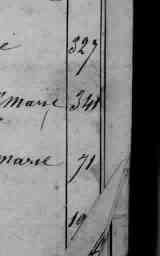 327
marie 341
marie 71
19